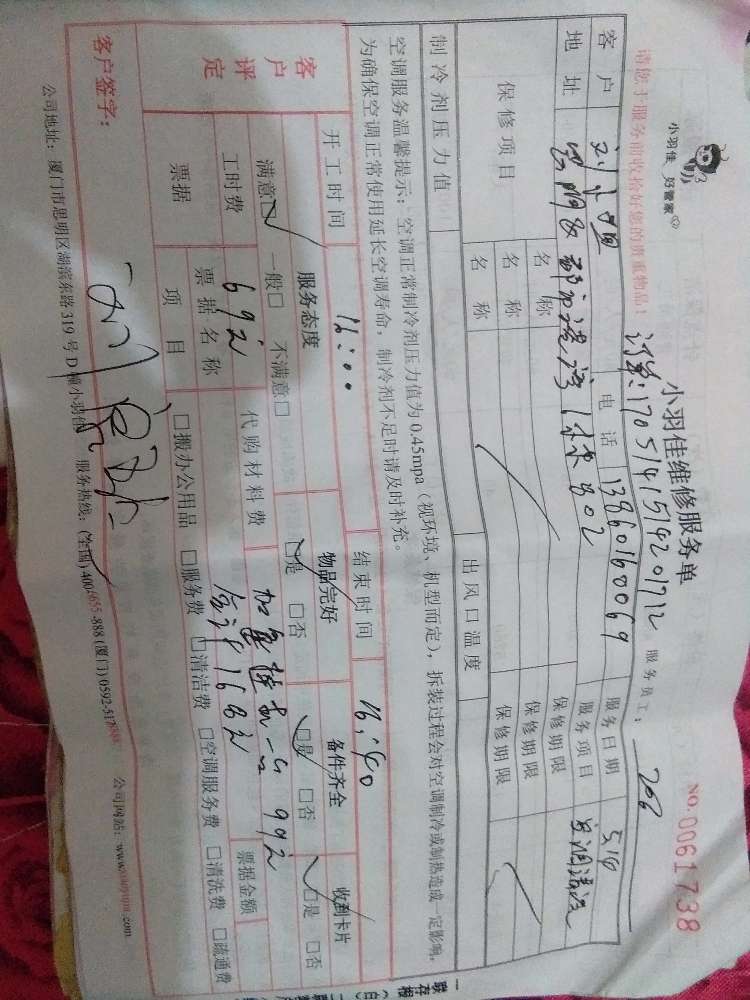 小羽佳 好管家
小羽佳维修服务单
NO.0061738
请您于服务前收拾好您的贵重物品!
订单:1705141514201712
服务员工:
客户
电话 13860160069
服务日期 5.14
地址
1栋802
服务项目 空调清洗
保修项目
名称
保修期限
名称
保修期限
名称
保修期限
制冷剂压力值
出风口温度
空调服务温馨提示:空调正常制冷剂压力值为0.45mpa(视环境、机型而定),拆装过程会对空调制冷或制热造成一定影响,
为确保空调正常使用延长空调寿命,制冷剂不足时请及时补充。
开工时间 16:00 结束时间 16:40
客户评定
服务态度 物品完好 备件齐全 收到卡片
满意□ 一般□ 不满意□ □是 □否 □是 □否 □是 □否
工时费 69元 代购材料费 一台 99元
合计168元
票据 票据名称 票据金额
项目 □搬办公用品 □服务费 □清洁费 □空调服务费 □清洗费 □疏通费
客户签字:
公司地址:厦门市思明区湖滨东路319号D幢小羽佳 服务热线:(全国)400-6655-888 (厦门)0592- 公司网站: